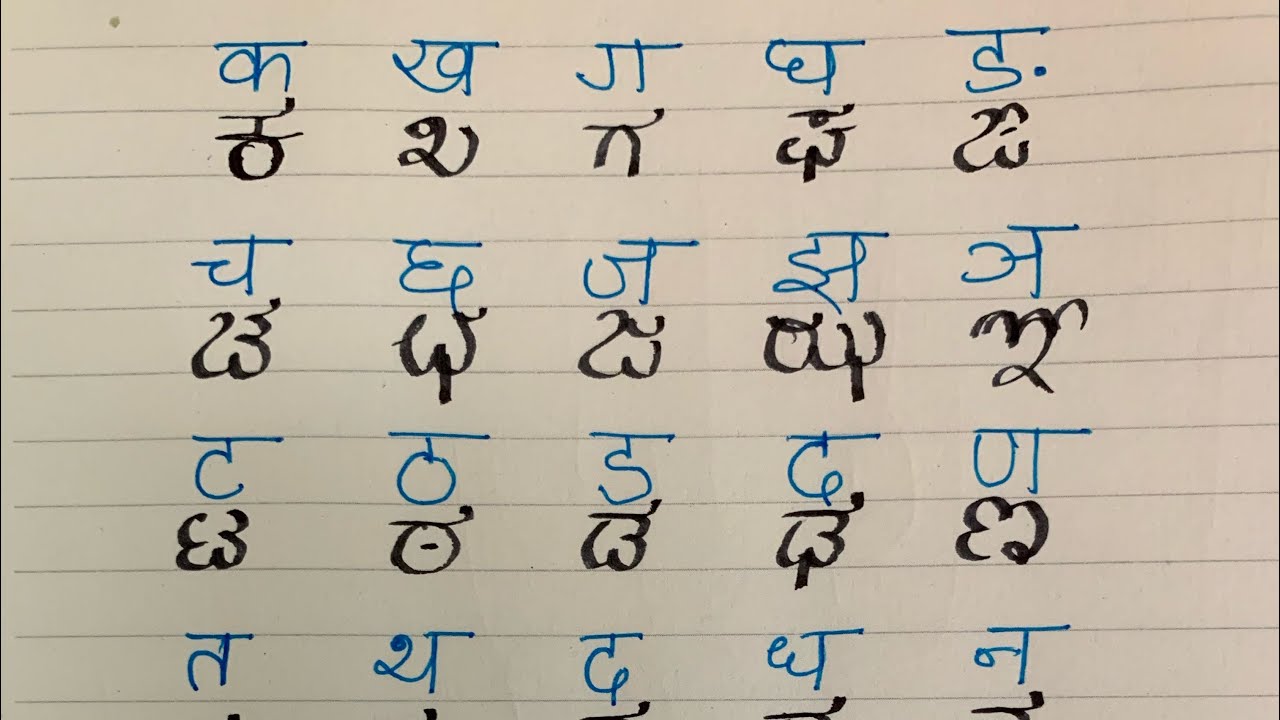 क ख ग घ ङ
ಕ ಖ ಗ ಘ ಙ
च छ ज झ ञ
ಚ ಛ ಜ ಝ ಞ
ट ठ ड ढ ण
ಟ ಠ ಡ ಢ ಣ
त थ द ध न